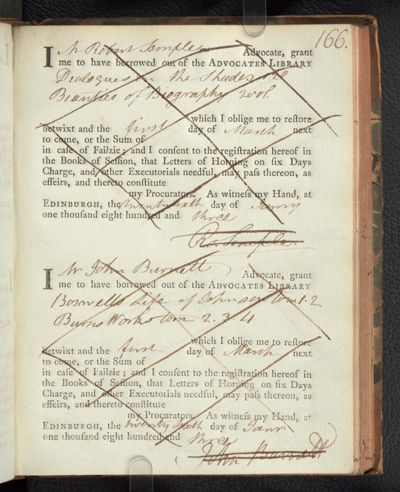 166.
I Mr Robert Semple Advocate, grant
me to have borrowed out of the ADVOCATES LIBRARY
Dialogues in the Shades 1 vol
Beauties of Biography 2 vol.
which I oblige me to restore
betwixt and the first day of March next
to come, or the Sum of
in case of Failzie; and I consent to the registration hereof in
the Books of Session, that Letters of Horning on six Days
Charge, and other Executorials needful, may pass thereon, as
effeirs, and thereto constitute
my Procurators. As witness my Hand, at
EDINBURGH, the day of
one thousand eight hundred and three
Ro. Semple
I Mr John Burnett Advocate, grant
me to have borrowed out of the ADVOCATES LIBRARY
Boswells Life of Johnson tom 1. 2
Burns Works tom 2. 3. 4
which I oblige me to restore
betwixt and the first day of March next
to come, or the Sum of
in case of Failzie; and I consent to the registration hereof in
the Books of Session, that Letters of Horning on six Days
Charge, and other Executorials needful, may pass thereon, as
effeirs, and thereto constitute
my Procurators. As witness my Hand, at
EDINBURGH, the day of Janry
one thousand eight hundred and three
John Burnett